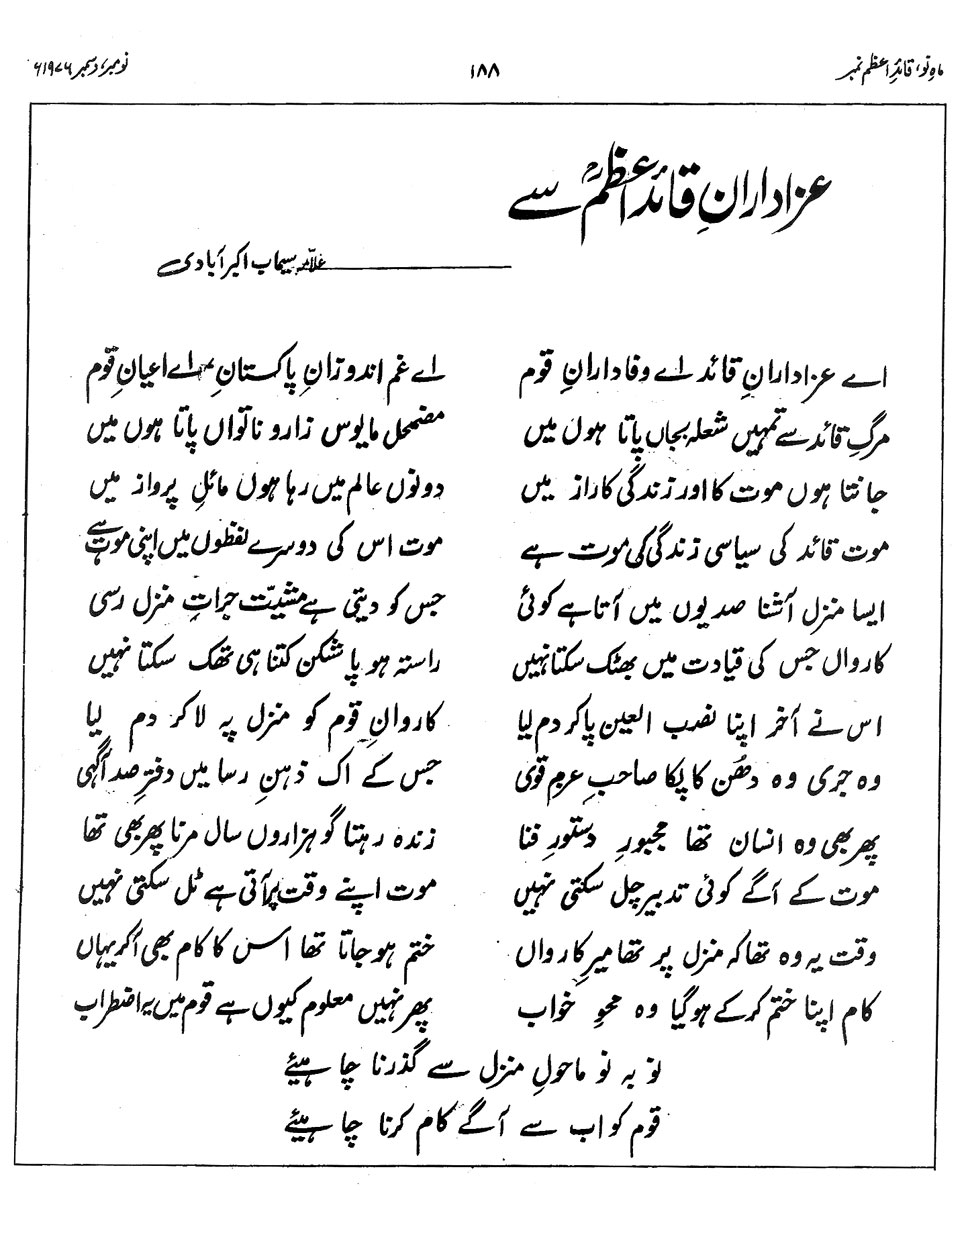 ماہِ نو، قائدِ اعظم نمبر ۱۸۸ نومبر، دسمبر ۱۹۷۶ء
عزادارانِ قائد اعظمؒ سے
علامہ سیماب اکبر آبادی
اے عزادارانِ قائد اے وفادارانِ قوم اے غم اندوزانِ پاکستان، اے اعیانِ قوم
مرگِ قائد سے تمہیں شعلہ بجاں پاتا ہوں میں مضمحل مایوس زار و ناتواں پاتا ہوں میں
جانتا ہوں موت کا اور زندگی کا راز میں دونوں عالم میں رہا ہوں مائلِ پرواز میں
موت قائد کی سیاسی زندگی کی موت ہے موت اس کی دوسرے لفظوں میں اپنی موت ہے
ایسا منزل آشنا صدیوں میں آتا ہے کوئی جس کو دیتی ہے مشیّت جراتِ منزل رسی
کارواں جس کی قیادت میں بھٹک سکتا نہیں راستہ ہو پا شکن کتنا ہی تھک سکتا نہیں
اس نے آخر اپنا نصب العین پا کر دم لیا کاروانِ قوم کو منزل پہ لا کر دم لیا
وہ جری وہ دھُن کا پکا صاحبِ عزمِ قوی جس کے اک ذہنِ رسا میں دفترِ صد آگہی
پھر بھی وہ انسان تھا مجبورِ دستورِ فنا زندہ رہتا گو ہزاروں سال مرنا پھر بھی تھا
موت کے آگے کوئی تدبیر چل سکتی نہیں موت اپنے وقت پر آتی ہے ٹل سکتی نہیں
وقت یہ وہ تھا کہ منزل پر تھا میرِ کارواں ختم ہو جاتا تھا اس کا کام بھی آ کر یہاں
کام اپنا ختم کر کے ہو گیا وہ محوِ خواب پھر نہیں معلوم کیوں ہے قوم میں یہ اضطراب
نو بہ نو ماحولِ منزل سے گذرنا چاہیئے
قوم کو اب سے آگے کام کرنا چاہیئے